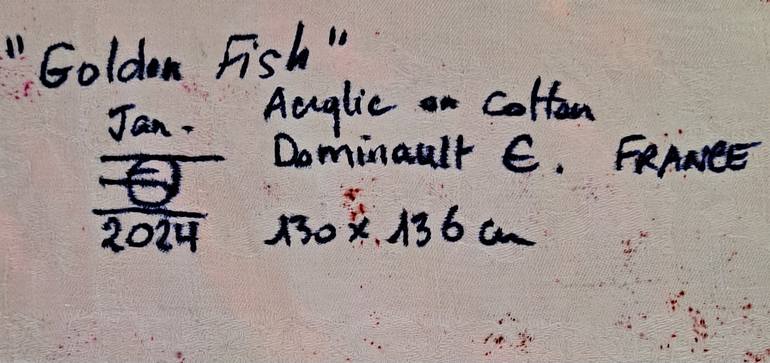 "Golden Fish"
Jan. Acrylic on Cotton
Dominault E. FRANCE
2024 130 x 136 cm